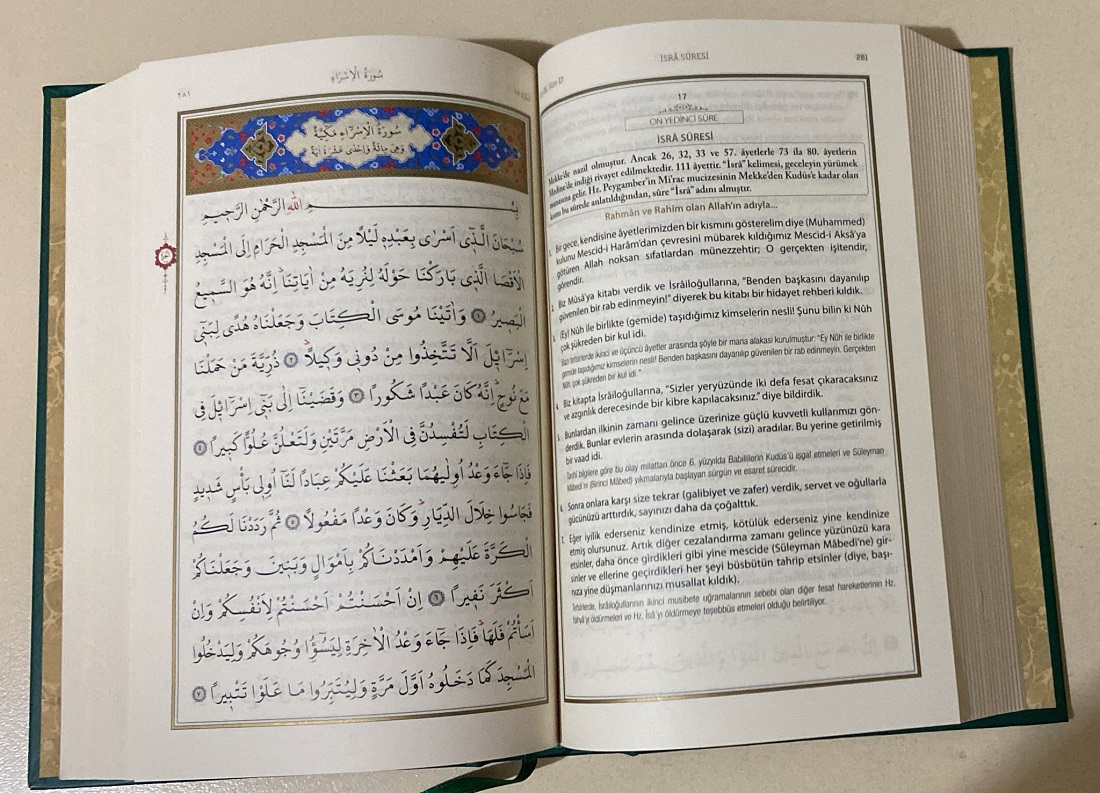 سُورَةُ الْاِسْرَاءِ
٢٨١
سُورَةُ الْاِسْرَاءِ مَكِّيَّةٌ
وَهِىَ مِائَةٌ وَاِحْدٰى عَشْرَةَ اٰيَةً
بِسْــــمِ اللّٰهِ الرَّحْمٰنِ الرَّحٖيمِ
سُبْحَانَ الَّذٖٓى اَسْرٰى بِعَبْدِهٖ لَيْلًا مِنَ الْمَسْجِدِ الْحَرَامِ اِلَى الْمَسْجِدِ
الْاَقْصَا الَّذٖى بَارَكْنَا حَوْلَهُ لِنُرِيَهُ مِنْ اٰيَاتِنَا اِنَّهُ هُوَ السَّمٖيعُ
الْبَصٖيرُ ١ وَاٰتَيْنَا مُوسَى الْكِتَابَ وَجَعَلْنَاهُ هُدًى لِبَنٖٓى
اِسْرَٓائٖلَ اَلَّا تَتَّخِذُوا مِنْ دُونٖى وَكٖيلًا ٢ ذُرِّيَّةَ مَنْ حَمَلْنَا
مَعَ نُوحٍ اِنَّهُ كَانَ عَبْدًا شَكُورًا ٣ وَقَضَيْنَٓا اِلٰى بَنٖٓى اِسْرَٓائٖلَ فِى
الْكِتَابِ لَتُفْسِدُنَّ فِى الْاَرْضِ مَرَّتَيْنِ وَلَتَعْلُنَّ عُلُوًّا كَبٖيرًا ٤
فَاِذَا جَٓاءَ وَعْدُ اُو۫لٰيهُمَا بَعَثْنَا عَلَيْكُمْ عِبَادًا لَنَٓا اُو۬لٖى بَاْسٍ شَدٖيدٍ
فَجَاسُوا خِلَالَ الدِّيَارِ وَكَانَ وَعْدًا مَفْعُولًا ٥ ثُمَّ رَدَدْنَا لَكُمُ
الْكَرَّةَ عَلَيْهِمْ وَاَمْدَدْنَاكُمْ بِاَمْوَالٍ وَبَنٖينَ وَجَعَلْنَاكُمْ
اَكْثَرَ نَفٖيرًا ٦ اِنْ اَحْسَنْتُمْ اَحْسَنْتُمْ لِاَنْفُسِكُمْ وَاِنْ
اَسَاْتُمْ فَلَهَا فَاِذَا جَٓاءَ وَعْدُ الْاٰخِرَةِ لِيَسُٓوؤُ۫ا وُجُوهَكُمْ وَلِيَدْخُلُوا
الْمَسْجِدَ كَمَا دَخَلُوهُ اَوَّلَ مَرَّةٍ وَلِيُتَبِّرُوا مَا عَلَوْا تَتْبٖيرًا ٧
İSRÂ SÛRESİ
281
17
ON YEDİNCİ SÛRE
İSRÂ SÛRESİ
Mekke'de nazil olmuştur. Ancak 26, 32, 33 ve 57. âyetlerle 73 ila 80. âyetlerin
Medine'de indiği rivayet edilmektedir. 111 âyettir. "İsrâ" kelimesi, geceleyin yürümek
manasına gelir. Hz. Peygamber'in Mi'rac mucizesinin Mekke'den Kudüs'e kadar olan
kısmı bu sûrede anlatıldığından, sûre "İsrâ" adını almıştır.
Rahmân ve Rahîm olan Allah'ın adıyla...
1. Bir gece, kendisine âyetlerimizden bir kısmını gösterelim diye (Muhammed)
kulunu Mescid-i Harâm'dan çevresini mübarek kıldığımız Mescid-i Aksâ'ya
götüren Allah noksan sıfatlardan münezzehtir; O gerçekten işitendir,
görendir.
2. Biz Mûsâ'ya kitabı verdik ve İsrâiloğullarına, "Benden başkasını dayanılıp
güvenilen bir rab edinmeyin!" diyerek bu kitabı bir hidayet rehberi kıldık.
3. (Ey) Nûh ile birlikte (gemide) taşıdığımız kimselerin nesli! Şunu bilin ki Nûh
çok şükreden bir kul idi.
Bazı tefsirlerde ikinci ve üçüncü âyetler arasında şöyle bir mana alakası kurulmuştur: "Ey Nûh ile birlikte
gemide taşıdığımız kimselerin nesli! Benden başkasını dayanılıp güvenilen bir rab edinmeyin. Gerçekten
Nûh, çok şükreden bir kul idi."
4. Biz kitapta İsrâiloğullarına, "Sizler yeryüzünde iki defa fesat çıkaracaksınız
ve azgınlık derecesinde bir kibre kapılacaksınız." diye bildirdik.
5. Bunlardan ilkinin zamanı gelince üzerinize güçlü kuvvetli kullarımızı gön-
derdik. Bunlar evlerin arasında dolaşarak (sizi) aradılar. Bu yerine getirilmiş
bir vaad idi.
Tarihî bilgilere göre bu olay milattan önce 6. yüzyılda Babillilerin Kudüs'ü işgal etmeleri ve Süleyman
Mâbedi'ni (Birinci Mâbed) yıkmalarıyla başlayan sürgün ve esaret sürecidir.
6. Sonra onlara karşı size tekrar (galibiyet ve zafer) verdik, servet ve oğullarla
gücünüzü arttırdık, sayınızı daha da çoğalttık.
7. Eğer iyilik ederseniz kendinize etmiş, kötülük ederseniz yine kendinize
etmiş olursunuz. Artık diğer cezalandırma zamanı gelince yüzünüzü kara
etsinler, daha önce girdikleri gibi yine mescide (Süleyman Mâbedi'ne) gir-
sinler ve ellerine geçirdikleri her şeyi büsbütün tahrip etsinler (diye, başı-
nıza yine düşmanlarınızı musallat kıldık).
Tefsirlerde, İsrâiloğullarının ikinci musibete uğramalarının sebebi olan diğer fesat hareketlerinin Hz.
Yahyâ'yı öldürmeleri ve Hz. Îsâ'yı öldürmeye teşebbüs etmeleri olduğu belirtiliyor.